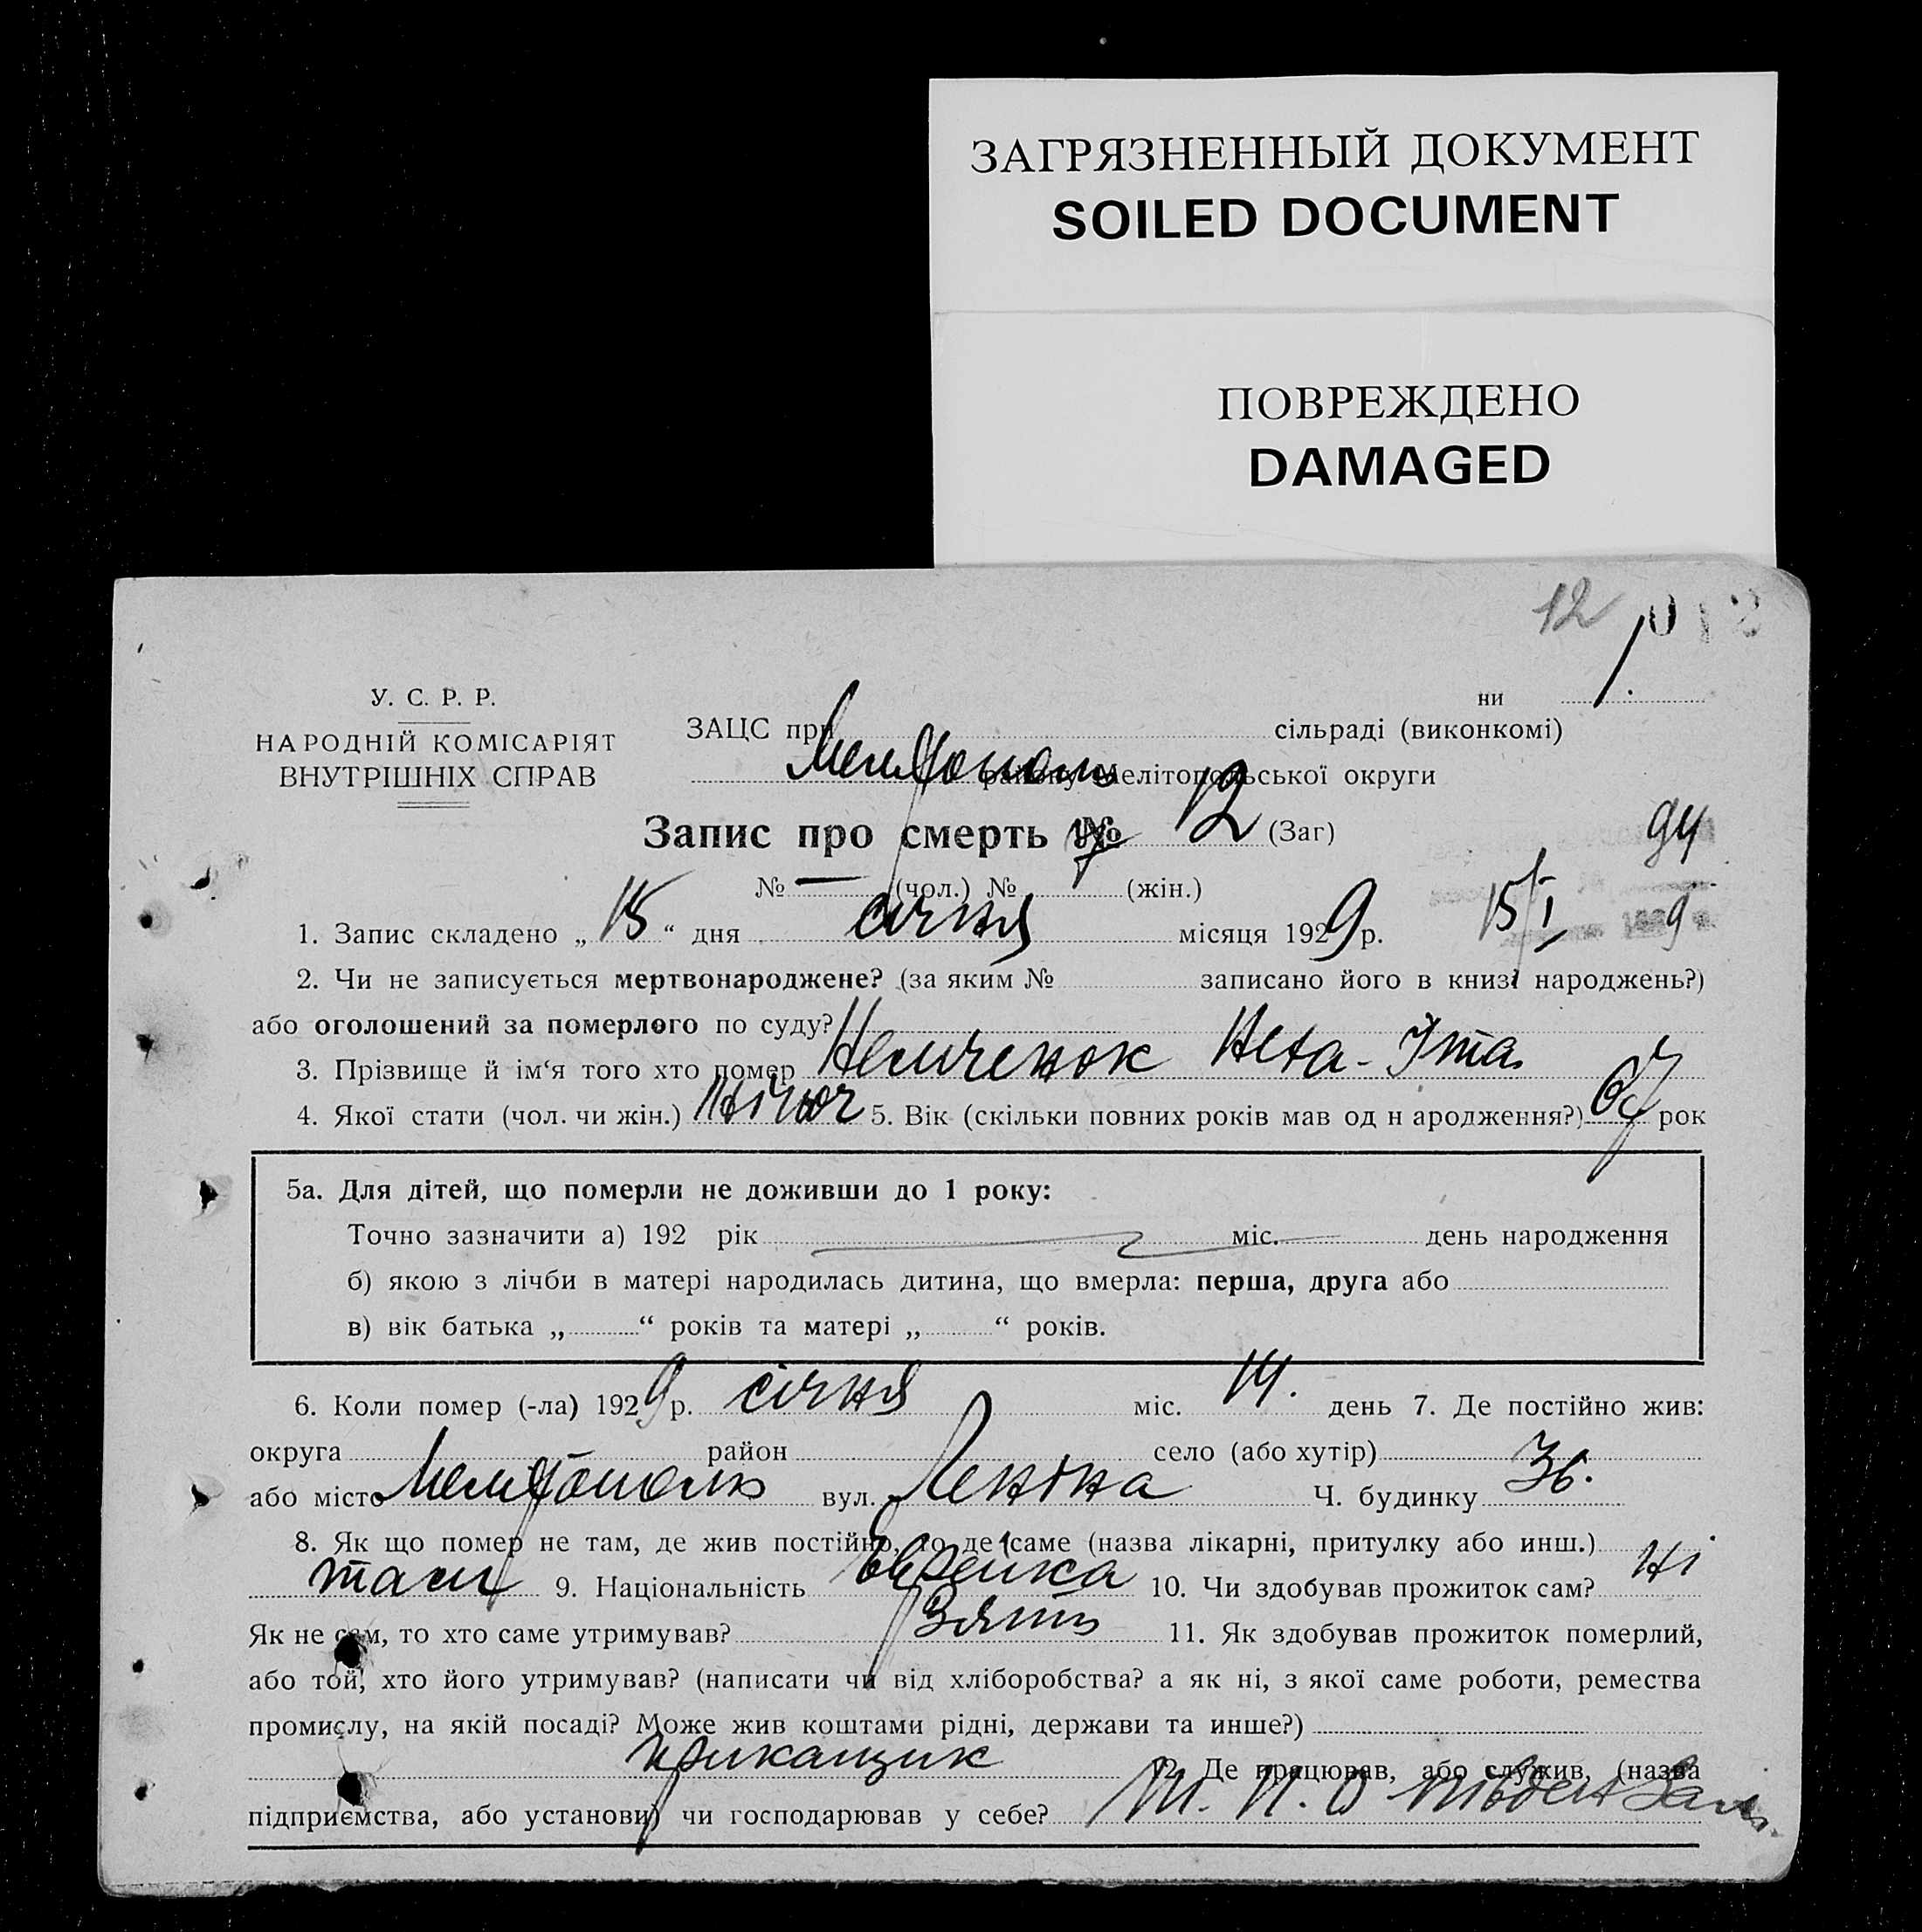 ЗАГРЯЗНЕННЫЙ ДОКУМЕНТ
SOILED DOCUMENT
ПОВРЕЖДЕНО
DAMAGED
12
1.
У. С. Р. Р.
НАРОДНІЙ КОМІСАРІЯТ
ВНУТРІШНІХ СПРАВ
ни
ЗАЦС при сільраді (виконкомі)
Мелітополь району Мелітопольської округи
Запис про смерть № 12 (Заг)
94
№ — (чол.) № 7 (жін.)
1. Запис складено „15“ дня січня місяця 1929 р. 15/I 9
2. Чи не записується мертвонароджене? (за яким № записано його в книзі народжень?)
або оголошений за померлого по суду?
3. Прізвище й ім‘я того хто помер Немченок Нета-Іта
4. Якої стати (чол. чи жін.) жіноч 5. Вік (скільки повних років мав од н ародження?) 67 рок
5а. Для дітей, що померли не доживши до 1 року:
Точно зазначити а) 192 рік міс. день народження
б) якою з лічби в матері народилась дитина, що вмерла: перша, друга або
в) вік батька „ “ років та матері „ “ років.
6. Коли помер (-ла) 1929 р. січня міс. 14. день 7. Де постійно жив:
округа район село (або хутір)
або місто Мелітополь вул. Леніна Ч. будинку 36.
8. Як що помер не там, де жив постійно, то де саме (назва лікарні, притулку або инш.)
там 9. Національність Єврейка 10. Чи здобував прожиток сам? ні
Як не сам, то хто саме утримував? Зять 11. Як здобував прожиток померлий,
або той, хто його утримував? (написати чи від хліборобства? а як ні, з якої саме роботи, ремества
промислу, на якій посаді? Може жив коштами рідні, держави та инше?)
приканщик 12. Де працював, або служив, (назва
підприємства, або установи) чи господарював у себе?